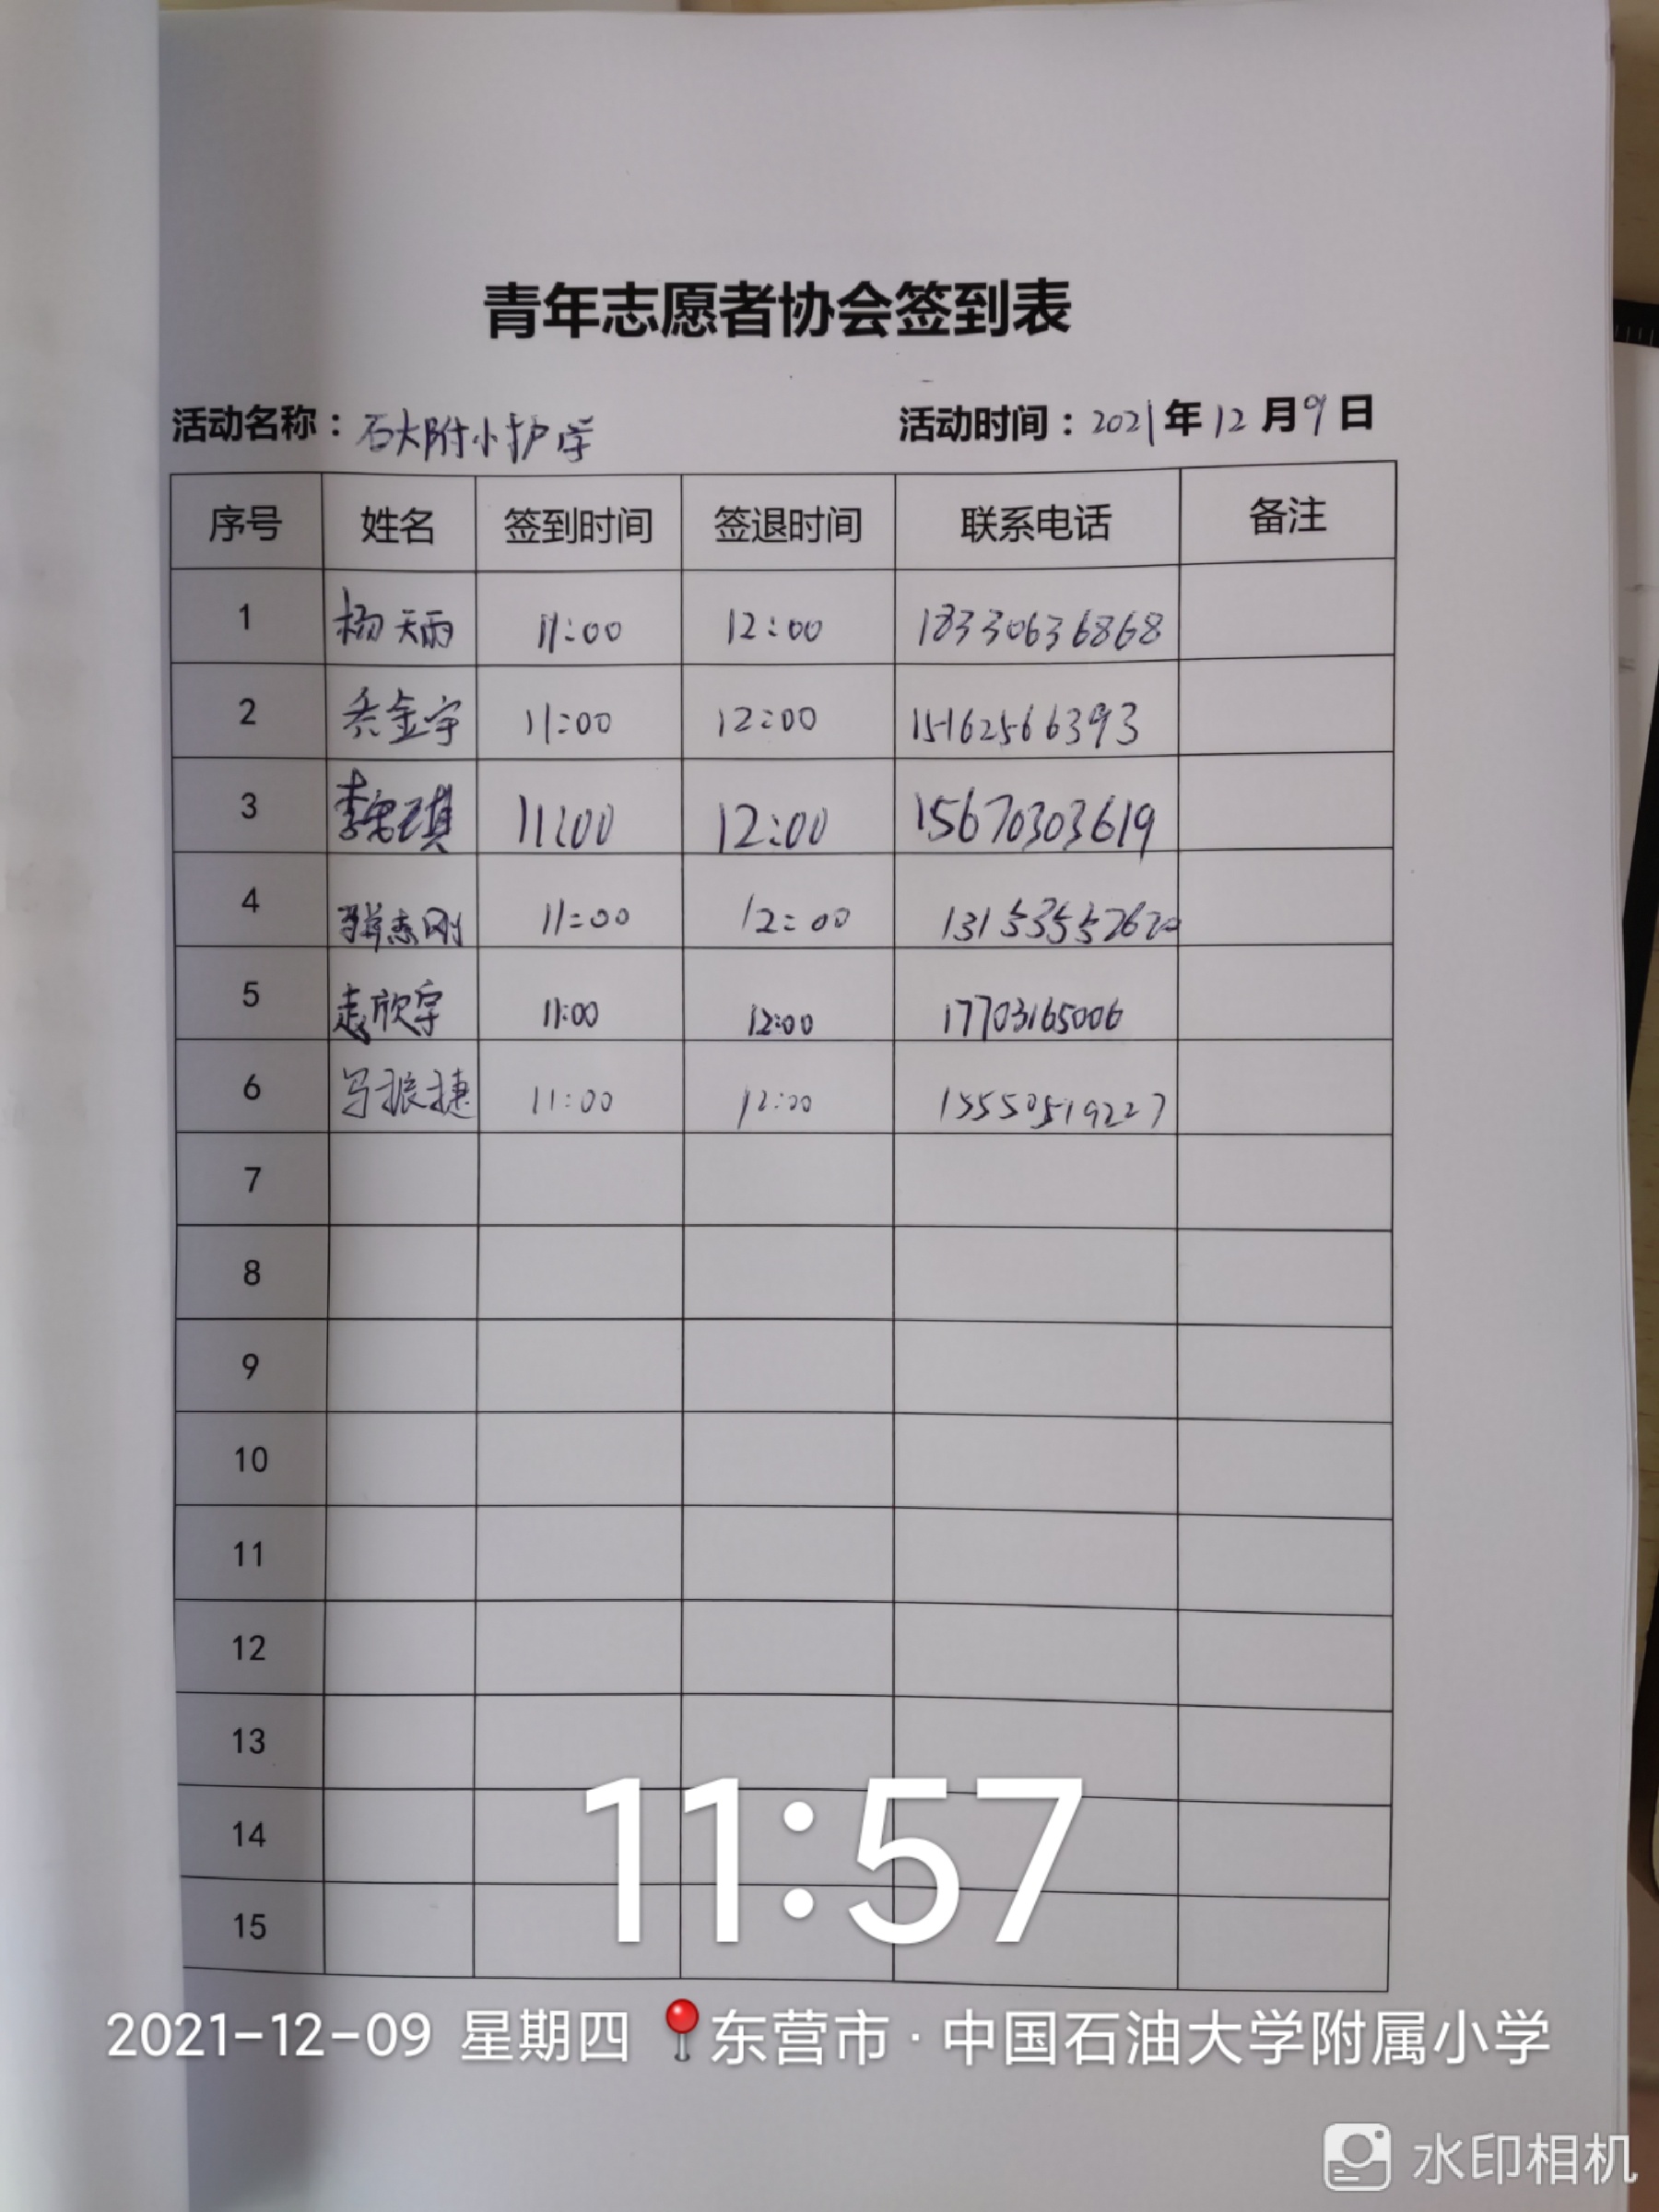 青年志愿者协会签到表
活动名称：石大附小护学 活动时间：2021年12月9日
序号 姓名 签到时间 签退时间 联系电话 备注
1 杨天雨 11:00 12:00 18330636868
2 金宇 11:00 12:00 15162566393
3 李 琪 11:00 12:00 15670303619
4 志刚 11:00 12:00
5 欣宇 11:00 12:00 17703165006
6 马振捷 11:00 12:00 15550519227
7
8
9
10
11
12
13
14
15
11:57
2021-12-09 星期四 东营市·中国石油大学附属小学
水印相机